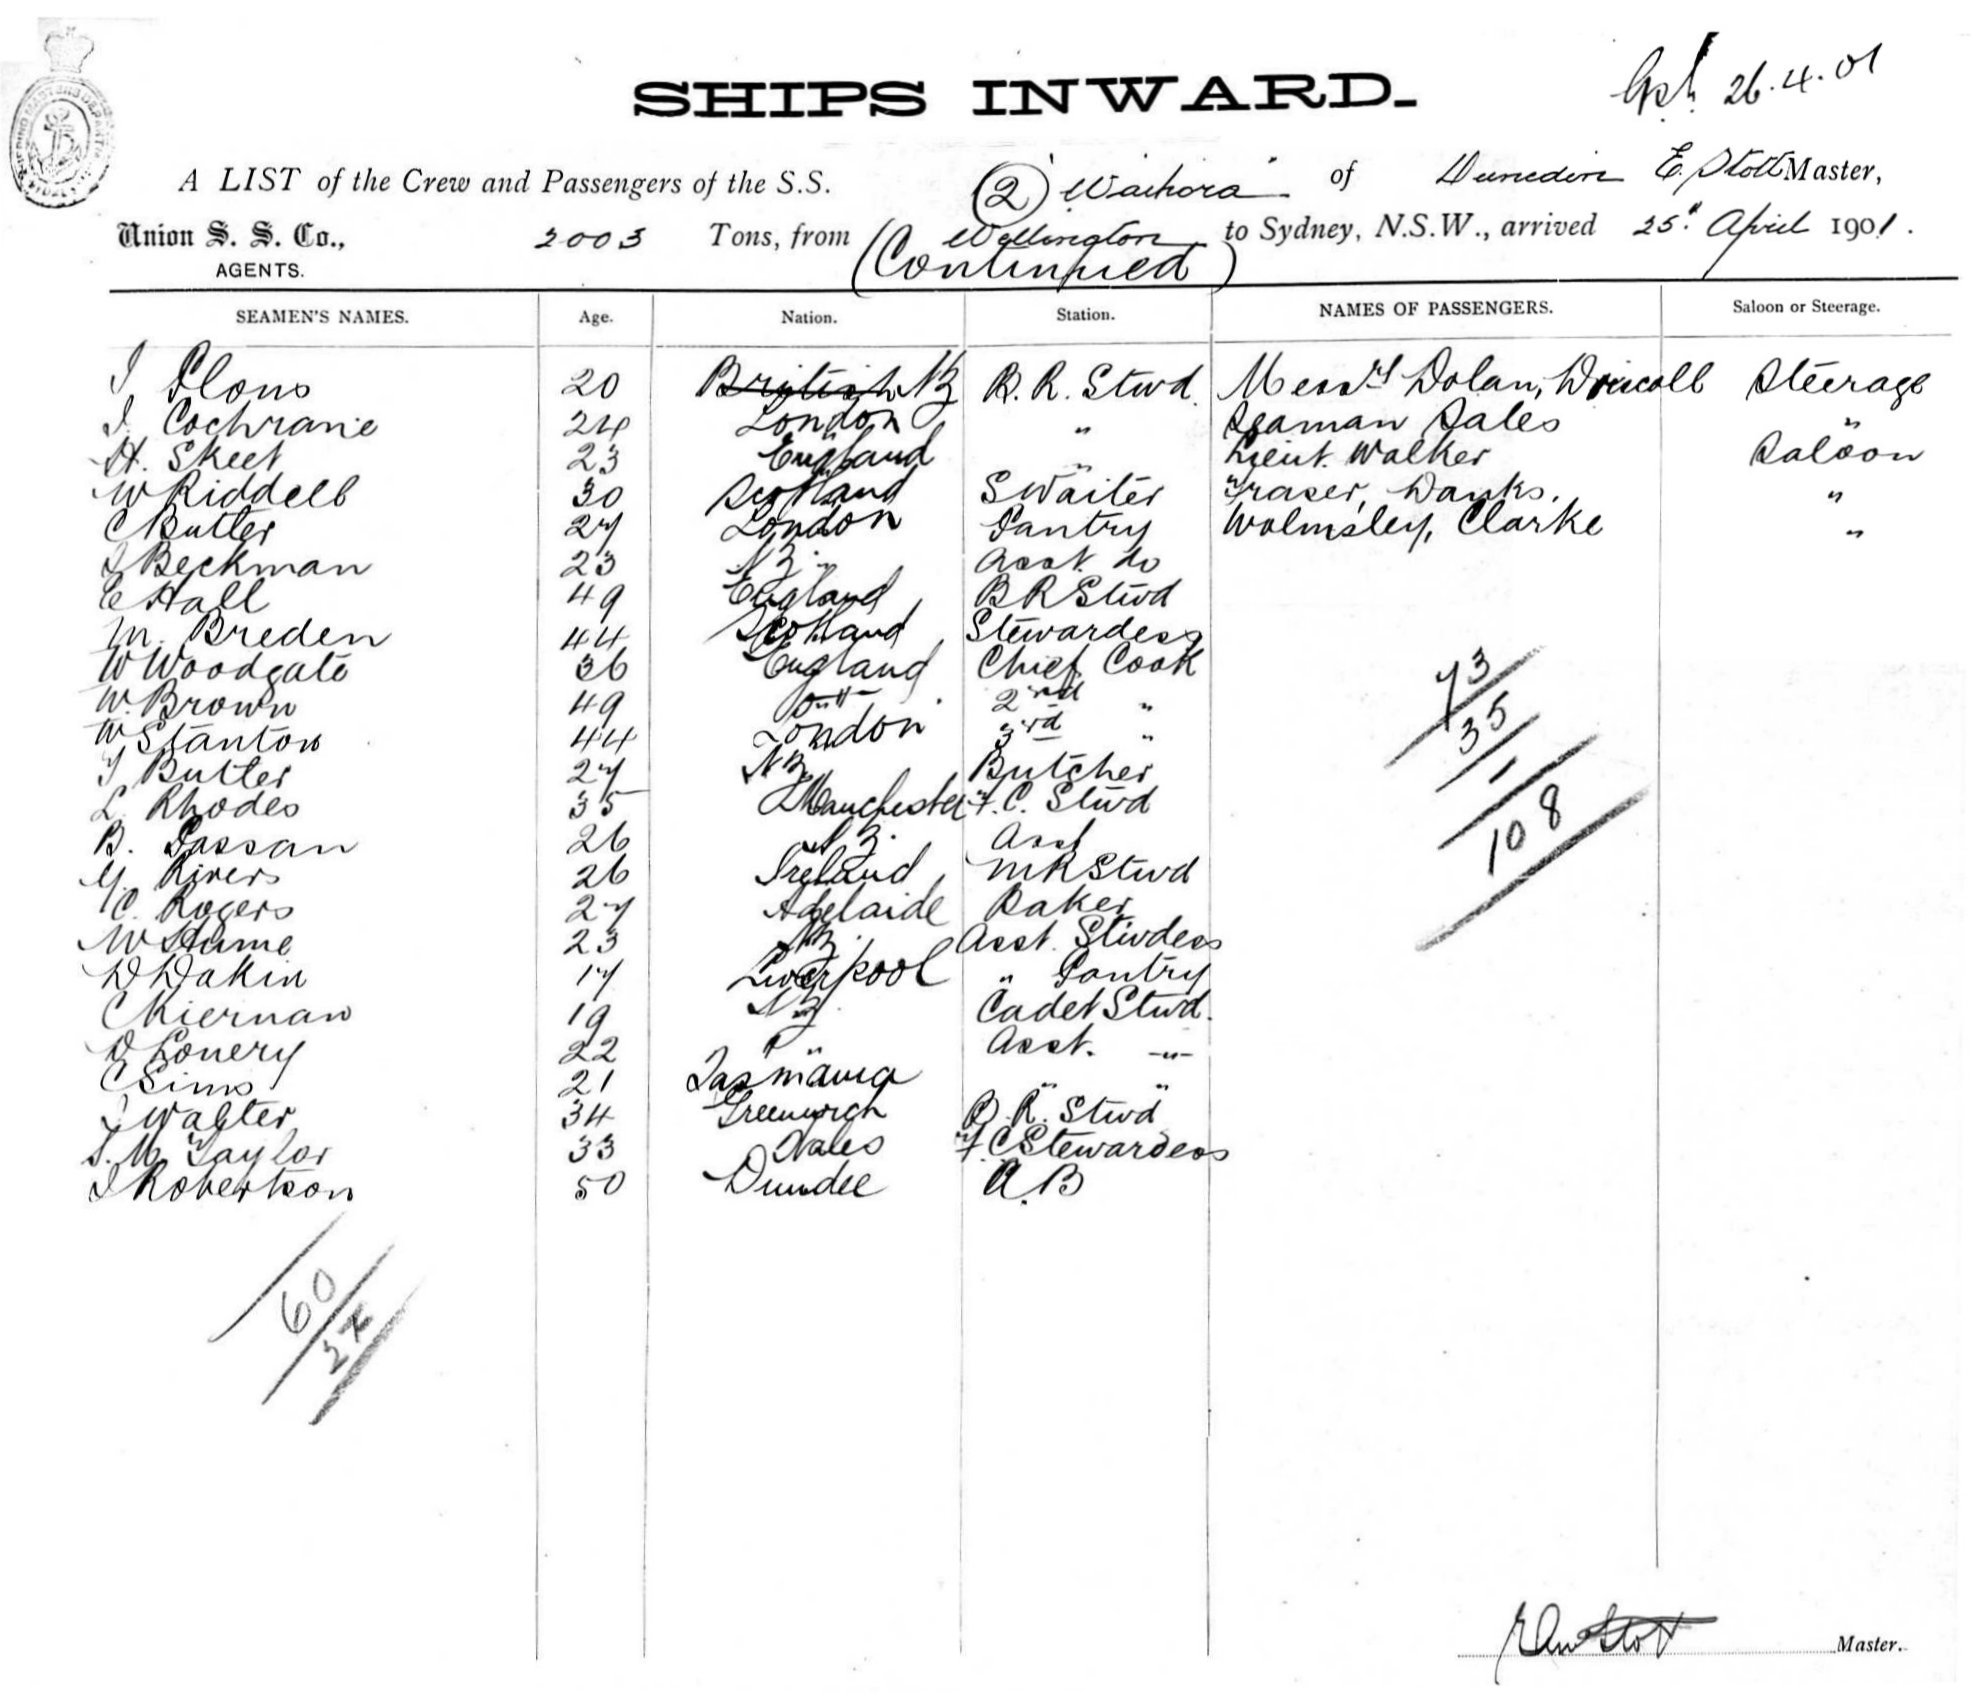 SHIPS INWARD.
26.4.01
A LIST of the Crew and Passengers of the S.S. (2) "Waihora" of Dunedin E. Stott Master,
Union S. S. Co., 2003 Tons, from Wellington to Sydney, N.S.W., arrived 25th April 1901.
AGENTS. (Continued)
SEAMEN'S NAMES. Age. Nation. Station. NAMES OF PASSENGERS. Saloon or Steerage.
20 British NZ B. R. Stwd. Messrs Dolan, Driscoll Steerage
J. Cochrane 24 London " Seaman Sales "
H. Skeet 23 England " Lieut. Walker Saloon
W Riddell 30 Scotland S Waiter Fraser, Danks. "
C Butler 27 London Pantry Walmsley, Clarke "
J Beckman 23 N Z. Asst. do
E Hall 49 England B R Stwd
M. Breden 44 Scotland Stewardess
W Woodgate 36 England Chief Cook
W. Brown 49 -"- 2nd "
W Stanton 44 London 3rd "
T Butler 27 NZ Butcher
L. Rhodes 35 Manchester F. C. Stwd
B. Passan 26 N Z. Asst
G. Rivers 26 Ireland M R Stwd
C. Rogers 27 Adelaide Baker
W Hume 23 NZ. Asst. Stwdess
D Dakin 17 Liverpool " Pantry
C Kiernan 19 N Z. Cadet Stwd.
22 " Asst. -"-
C Sims 21 Tasmania " "
J Walter 34 Greenwich B. R. Stwd
S. M. Taylor 33 Wales F. C Stewardess
J Robertson 50 Dundee A. B
73
35
1
108
60
Master.